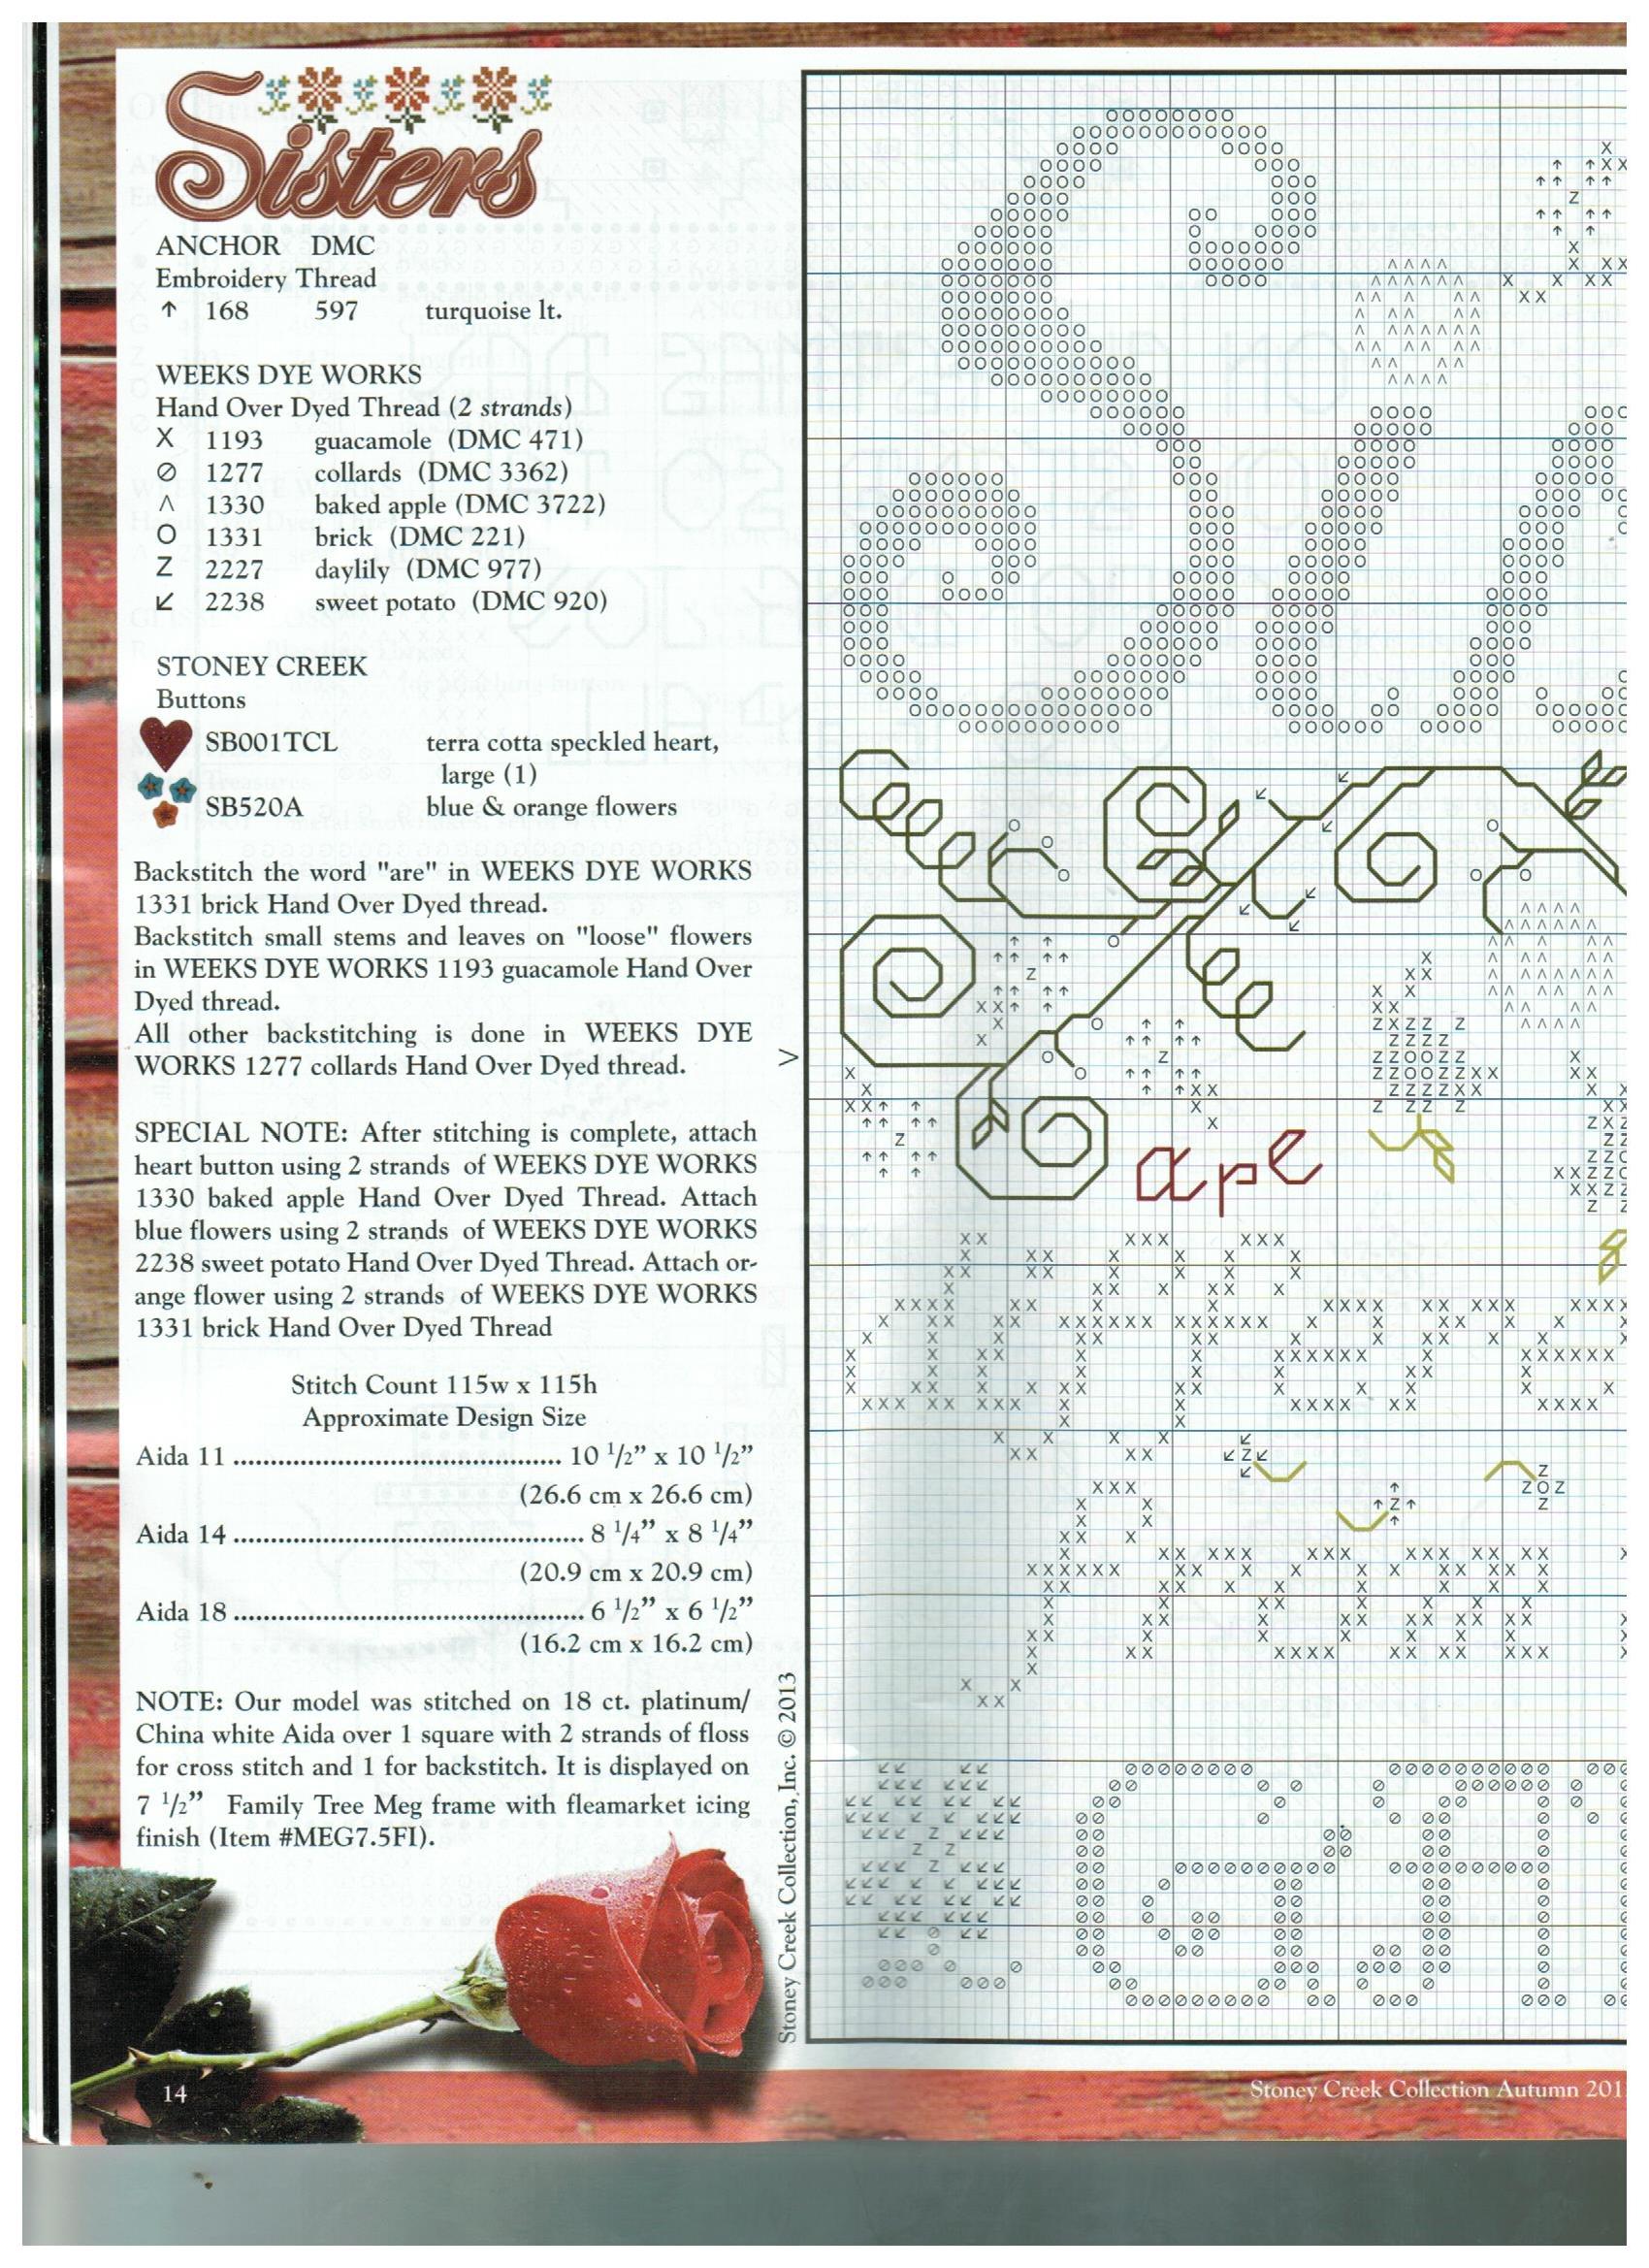 Sisters
ANCHOR DMC
Embroidery Thread
↑ 168 597 turquoise lt.
WEEKS DYE WORKS
Hand Over Dyed Thread (2 strands)
X 1193 guacamole (DMC 471)
⊘ 1277 collards (DMC 3362)
^ 1330 baked apple (DMC 3722)
O 1331 brick (DMC 221)
Z 2227 daylily (DMC 977)
↙ 2238 sweet potato (DMC 920)
STONEY CREEK
Buttons
SB001TCL terra cotta speckled heart,
large (1)
SB520A blue & orange flowers
Backstitch the word "are" in WEEKS DYE WORKS
1331 brick Hand Over Dyed thread.
Backstitch small stems and leaves on "loose" flowers
in WEEKS DYE WORKS 1193 guacamole Hand Over
Dyed thread.
All other backstitching is done in WEEKS DYE
WORKS 1277 collards Hand Over Dyed thread.
SPECIAL NOTE: After stitching is complete, attach
heart button using 2 strands of WEEKS DYE WORKS
1330 baked apple Hand Over Dyed Thread. Attach
blue flowers using 2 strands of WEEKS DYE WORKS
2238 sweet potato Hand Over Dyed Thread. Attach or-
ange flower using 2 strands of WEEKS DYE WORKS
1331 brick Hand Over Dyed Thread
Stitch Count 115w x 115h
Approximate Design Size
Aida 11 ............................................ 10 1/2” x 10 1/2”
(26.6 cm x 26.6 cm)
Aida 14 ............................................... 8 1/4” x 8 1/4”
(20.9 cm x 20.9 cm)
Aida 18 ............................................... 6 1/2” x 6 1/2”
(16.2 cm x 16.2 cm)
NOTE: Our model was stitched on 18 ct. platinum/
China white Aida over 1 square with 2 strands of floss
for cross stitch and 1 for backstitch. It is displayed on
7 1/2” Family Tree Meg frame with fleamarket icing
finish (Item #MEG7.5FI).
14
Stoney Creek Collection, Inc. © 2013
are
Stoney Creek Collection Autumn 201